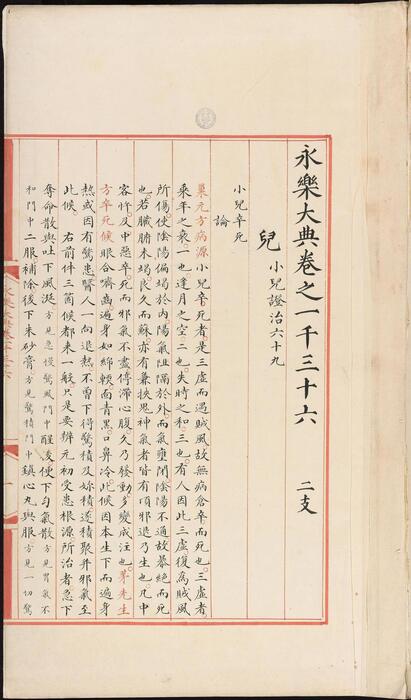 永樂大典卷之一千三十六 二支
兒 小兒證治六十九
小兒卒死
論
巢元方病源小兒卒死者是三虛而遇賊風故無病倉卒而死也三虛者
乘年之衰一也逢月之空二也失時之和三也有人因此三虛復為賊風
所傷使陰陽偏竭於內陽氣阻隔於外而氣壅閉陰陽不通故暴絕而死
也若臟腑未竭良久而蘇亦有兼挾鬼神氣者皆有頃邪退乃生也凡中
客忤及中惡卒死而邪氣不盡停滯心腹久乃發動多變成注也茅先生
方卒死候眼合齊鳴遍身如綿軟面青黑口鼻冷此候因本生下而遍身
熱或因有驚患醫人一向退熱不曾下得驚積及妳積遂積聚并邪氣至
此候右前件三箇候都來一般只是要辨元初受患根源所治者急下
奪命散與吐下風涎方見急慢驚風門中醒後便下勻氣散方見胃氣不
和門中二服補除後下朱砂膏方見驚積門中鎮心丸與服方見一切驚